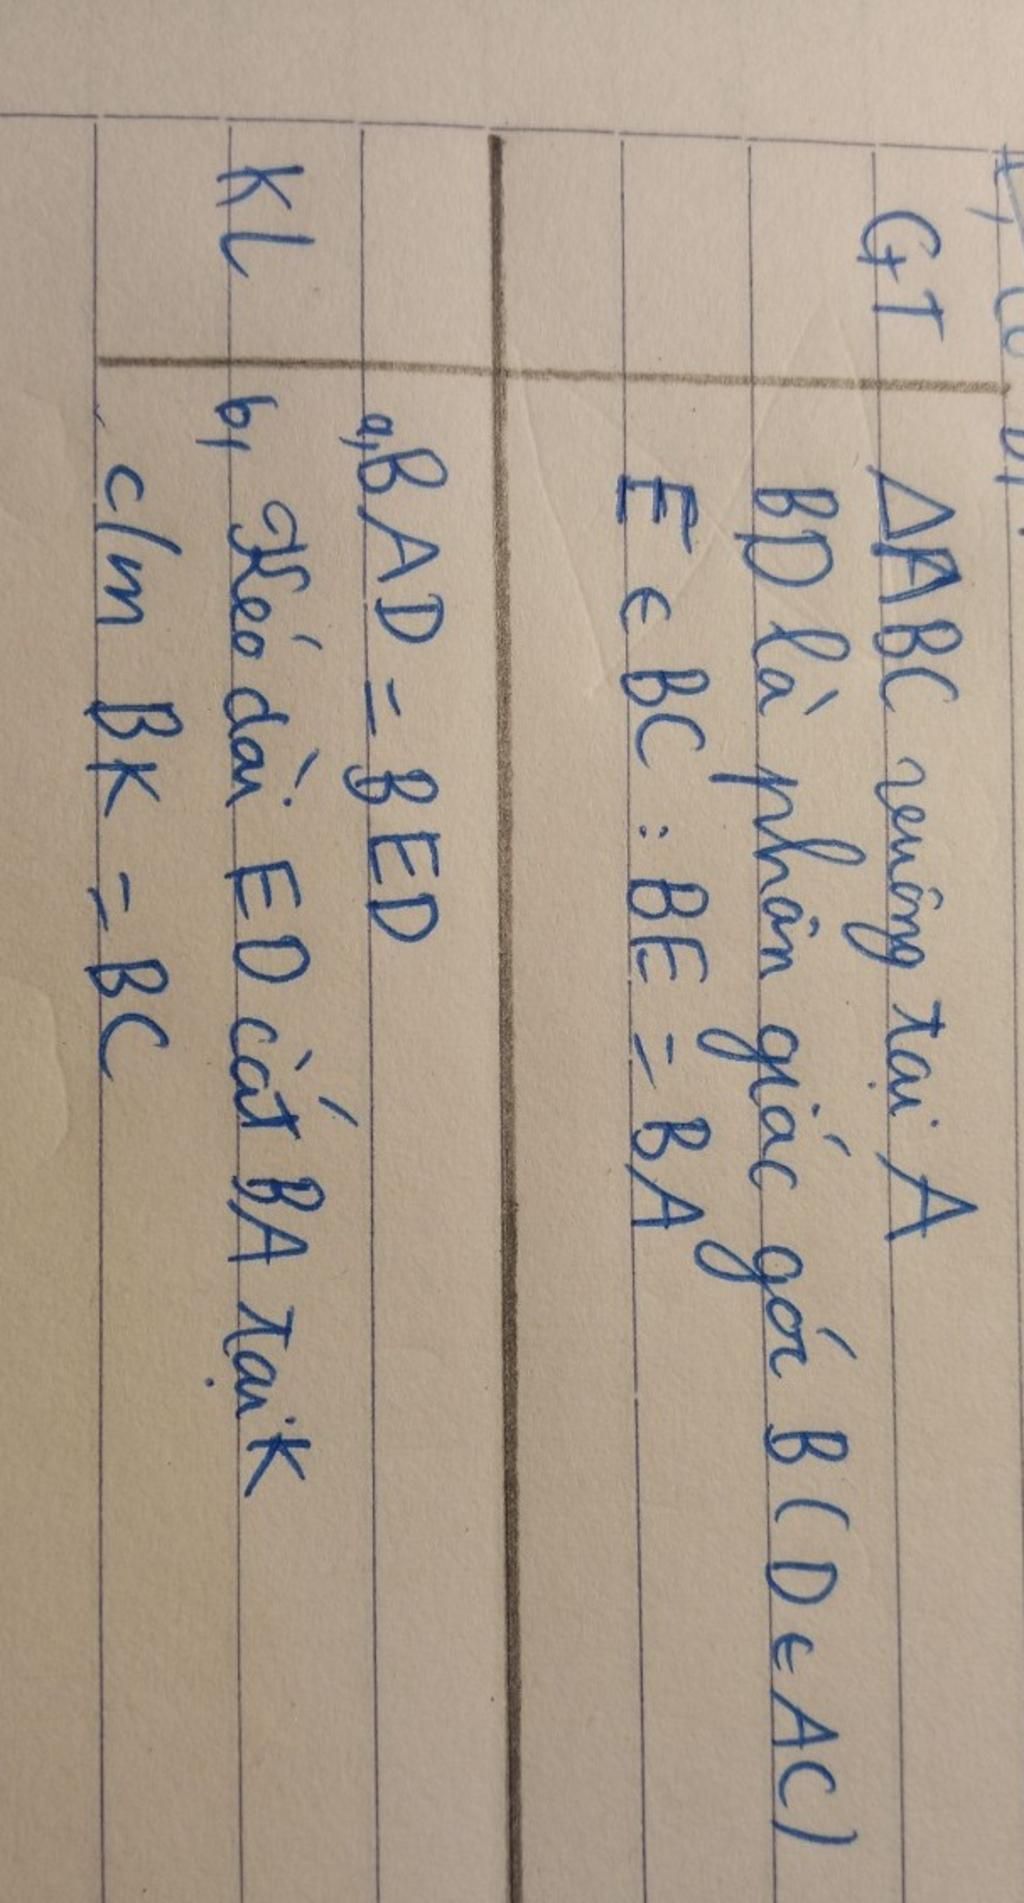 GT ΔABC vuông tại A
BD là phân giác góc B (D ∈ AC)
E ∈ BC : BE = BA
a, BAD = BED
KL b, Kéo dài ED cắt BA tại K
c/m BK = BC